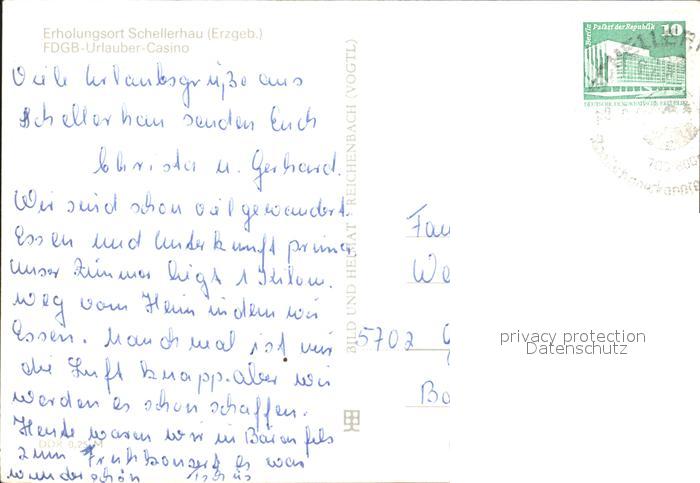 Erholungsort Schellerhau (Erzgeb.)
FDGB-Urlauber-Casino
Viele Urlaubsgrüße aus
Schellerhau senden Euch
Christa u. Gerhard.
Wir sind schon viel gewandert.
Essen und Unterkunft prima
unser Zimmer liegt 1
weg vom Heim indem wir
Essen. Manchmal ist mir
die Luft knapp. Aber wir
werden es schon schaffen.
Heute waren wir in Bärenfels
zum Frühkonzert es war
wunderschön Tschüs
DDR 0,25 M
BILD UND HEIMAT REICHENBACH (VOGTL)
Berlin Palast der Republik
10
DEUTSCHE DEMOKRATISCHE REPUBLIK
SCHELLER
Fam
We
5702
Ba
privacy protection
Datenschutz